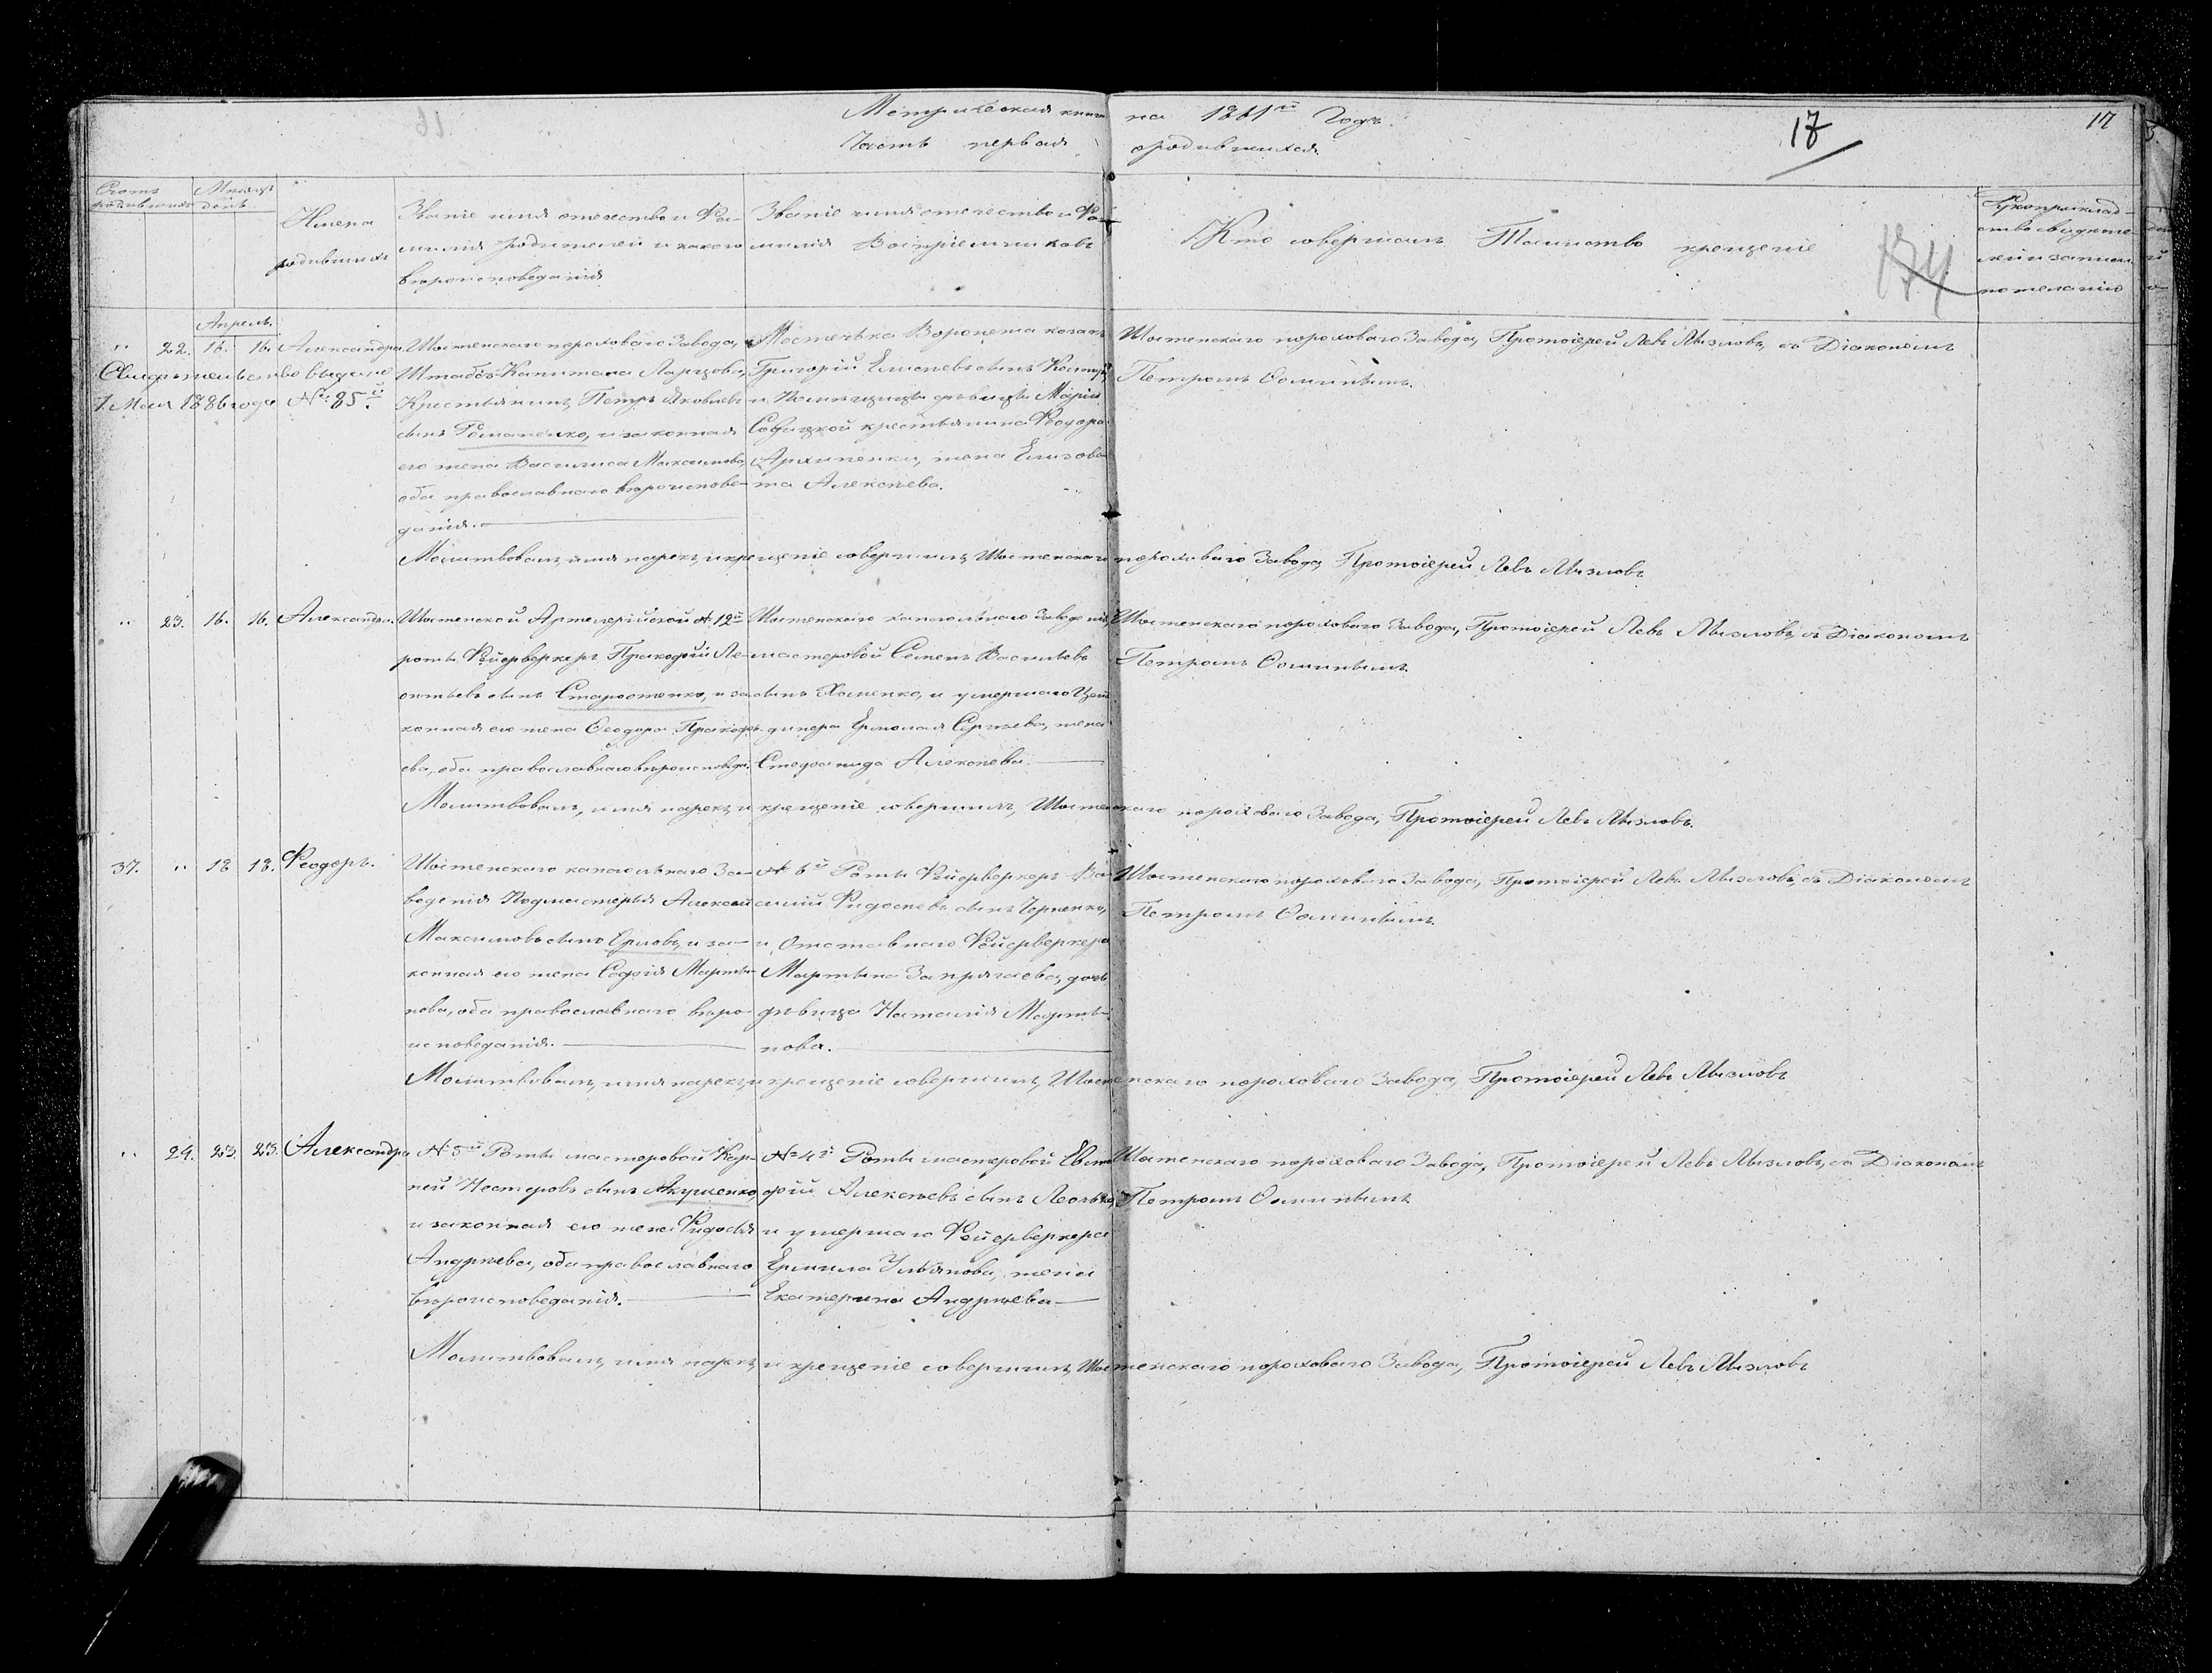 Метрическая книга на 1861й Годъ.
Часть первая о родившихся.
17
17
Счетъ родившихся
Мѣсяцъ день
Имена родившихъ
Званіе имя отечество и Фамилія родителей и какого вѣроисповеданія
Званіе имя отечество и Фамилія Воспріемниковъ
Кто совершалъ Таинство крещеніе
Рукоприкладство свидѣтелей и записи по желанію
174
Апрель.
" 22. 16. 16. Александра.
Свидѣтельство выдано
7. Мая 1886 года № 85й.
Шостенскаго пороховаго Завода,
Штабсъ-Капитана Ларцова,
Крестьянинъ, Петръ Яковлевъ
сынъ Романенко, и законная
его жена Василиса Максимова,
оба православнаго вѣроисповѣ-
данія.
Мѣстечька Воронежа козакъ
Григорій Елисеевъ сынъ
и Помѣщицы дѣвицы Маріи
крестьянина Феодора
Архипенки, жена Елизове-
та Алексѣева.
Шостенскаго пороховаго Завода, Протоіерей Левъ Мызловъ, съ Діакономъ
Петромъ Ѳоминымъ.
Молитвовалъ, имя нарекъ, и крещеніе совершилъ, Шостенскаго пороховаго Завода, Протоіерей Левъ Мызловъ
" 23. 16. 16. Александра.
Шостенской Артилерійской № 12й
роты Фейерверкеръ Пракофій Ле-
онтьевъ сынъ Старостенко, и за-
конная его жена Ѳеодора Пракофь-
ева, оба православнаго вѣроисповѣда.
Шостенскаго капсюльнаго Заведенія,
мастеровой Семенъ Васильевъ
сынъ Хоменко, и умершаго
Ермолая Сергѣева, жена
Стефанида Алексѣева.
Шостенскаго пороховаго Завода, Протоіерей Левъ Мызловъ, съ Діакономъ
Петромъ Ѳоминымъ.
Молитвовалъ, имя нарекъ, и крещеніе совершилъ, Шостенскаго пороховаго Завода, Протоіерей Левъ Мызловъ.
37. " 18 18. Феодоръ.
Шостенскаго капсюльнаго За-
веденія Подмастерья Алексѣй
Максимовъ сынъ Орловъ, и за-
конная его жена Софія Марты-
нова, оба православнаго вѣро-
исповеданія.
№ 6й Роты Фейерверкеръ Ва-
силій Фидосѣевъ сынъ Черненко,
и Отставнаго Фейерверкера
Мартына Запрягаева, дочь
дѣвица Наталія Марты-
нова.
Шостенскаго пороховаго Завода, Протоіерей Левъ Мызловъ, съ Діакономъ
Петромъ Ѳоминымъ.
Молитвовалъ, имя нарекъ, и крещеніе совершилъ, Шостенскаго пороховаго Завода, Протоіерей Левъ Мызловъ
" 24. 23. 23. Александра
№ 5й Роты мастеровой Кор-
ней Нестеровъ сынъ Акуленко,
и законная его жена Фидосья
Андрѣева, оба православнаго
вѣроисповеданія.
№ 4й Роты мастеровой Евти-
фій Алексѣевъ сынъ
и умершаго Фейерверкера
Ермила Ульянова, жена
Екатерина Андрѣева
Шостенскаго пороховаго Завода, Протоіерей Левъ Мызловъ, съ Діакономъ
Петромъ Ѳоминымъ
Молитвовалъ, имя нарекъ, и крещеніе совершилъ, Шостенскаго пороховаго Завода, Протоіерей Левъ Мызловъ